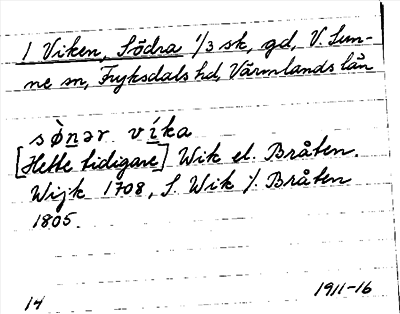 1 Viken, Södra 1/3 sk, gd, V. Sun-
ne sn, Fryksdals hd, Värmlands län
sø̀nər víka
[Hette tidigare] Wik el. Bråten.
Wijk 1708, S. Wik /. Bråten
1805.
14 1911-16